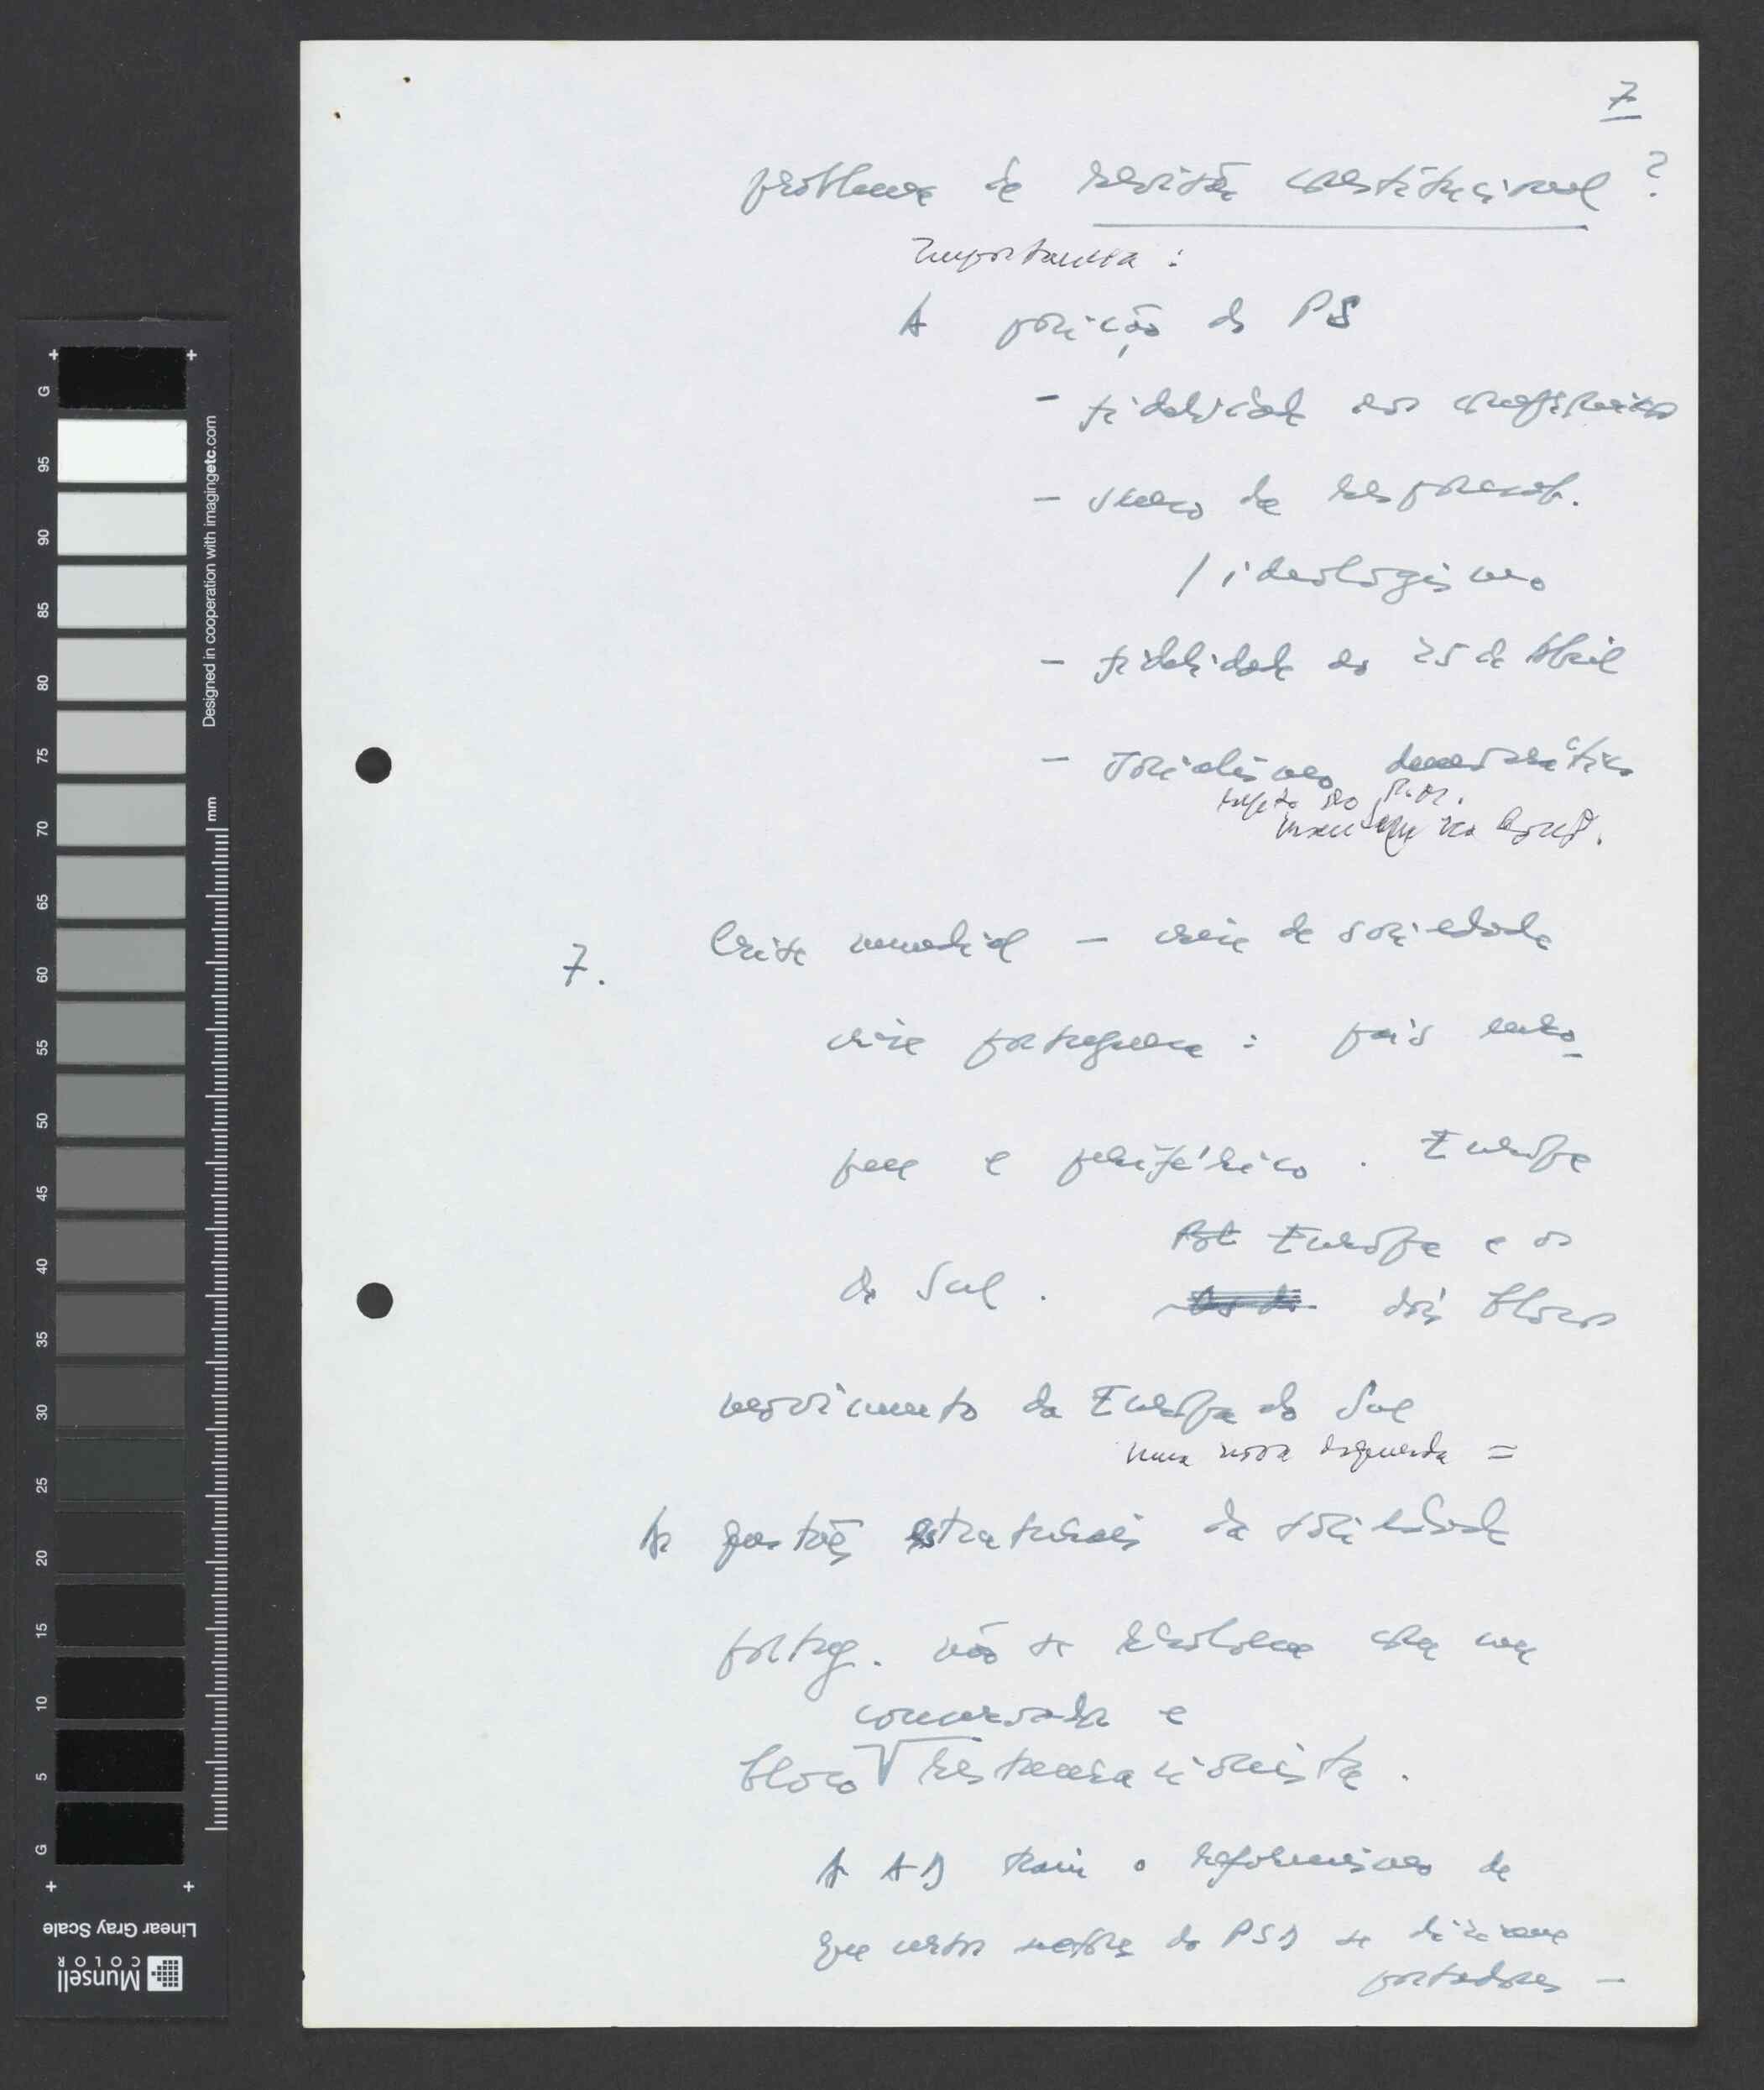 7
problema da revisão constitucional ?
Importância :
A posição do PS
- fidelidade aos compromissos
- senso da responsab.
/ ideologismo
- fidelidade ao 25 de Abril
- Socialismo democrático
na
7. Crise mundial - crise de sociedade
crise portuguesa : país euro-
peu e periférico . Europa
Europa e os
do Sul . dois blocos
movimento da Europa do Sul
uma nova esquerda =
As questões estruturais da sociedade
portug. não se resolvem com um
conservador e
bloco restauracionista .
A AD traiu o reformismo de
que certos sectores do PSD se diziam
portadores -
G 95 90 85 80 75 70 65 60 55 50 45 40 35 30 25 20 15 10 5 G
Designed in cooperation with imagingetc.com
mm
Linear Gray Scale
Munsell
COLOR